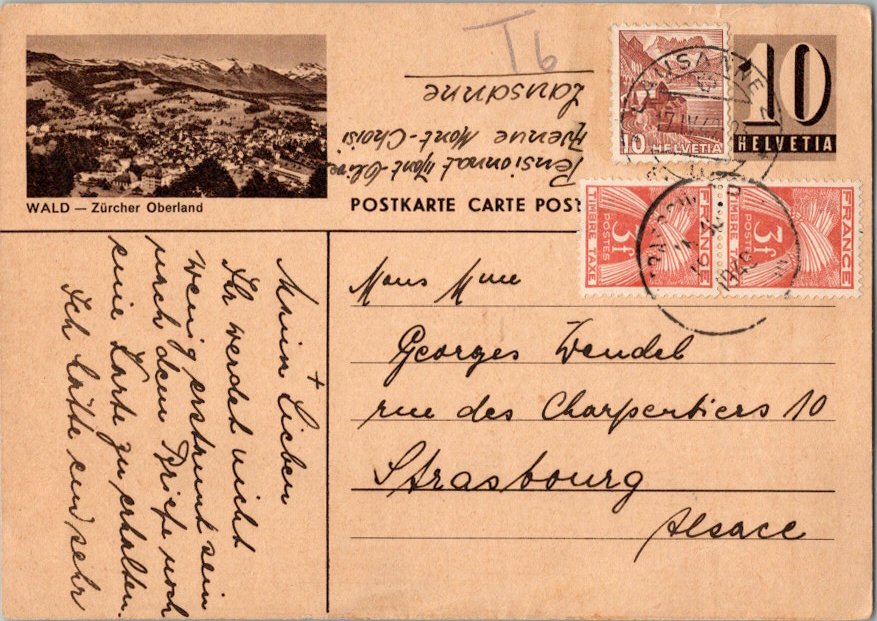 T 6
10
HELVETIA
10
HELVETIA
LAUSANNE
Pensionnat Mont-Olive
Avenue Mont-Choisi
Lausanne
WALD — Zürcher Oberland
POSTKARTE CARTE POST
FRANCE
3f
POSTES
TIMBRE TAXE
FRANCE
3f
POSTES
TIMBRE TAXE
STRASBOURG
1949
Mons Mme
Georges Wendel
rue des Charpentiers 10
Strasbourg
Alsace
Meine Lieben
Ihr werdet nicht
wenig erstaunt sein
nach dem Briefe noch
eine Karte zu erhalten.
Ich hätte eind sehr